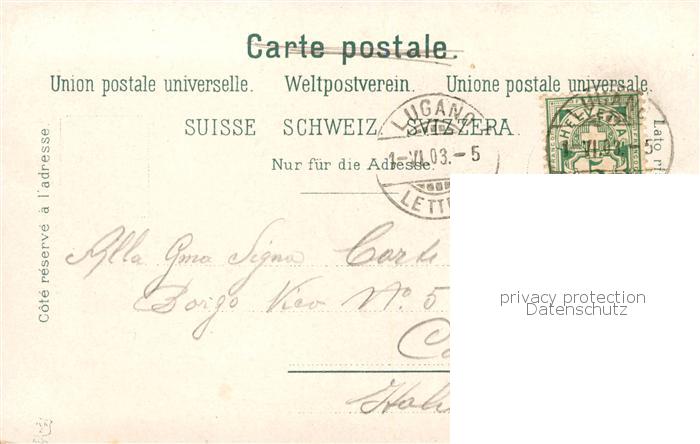 Carte postale.
Union postale universelle. Weltpostverein. Unione postale universale.
SUISSE SCHWEIZ SVIZZERA.
Nur für die Adresse.
Côté réservé à l'adresse.
Lato ris
LUGANO
1-VI.03.-5
LETTE
HELVETIA
1-VI.03.-5
5
Alla Gma Signa
Borgo Vico No. 5
privacy protection
Datenschutz